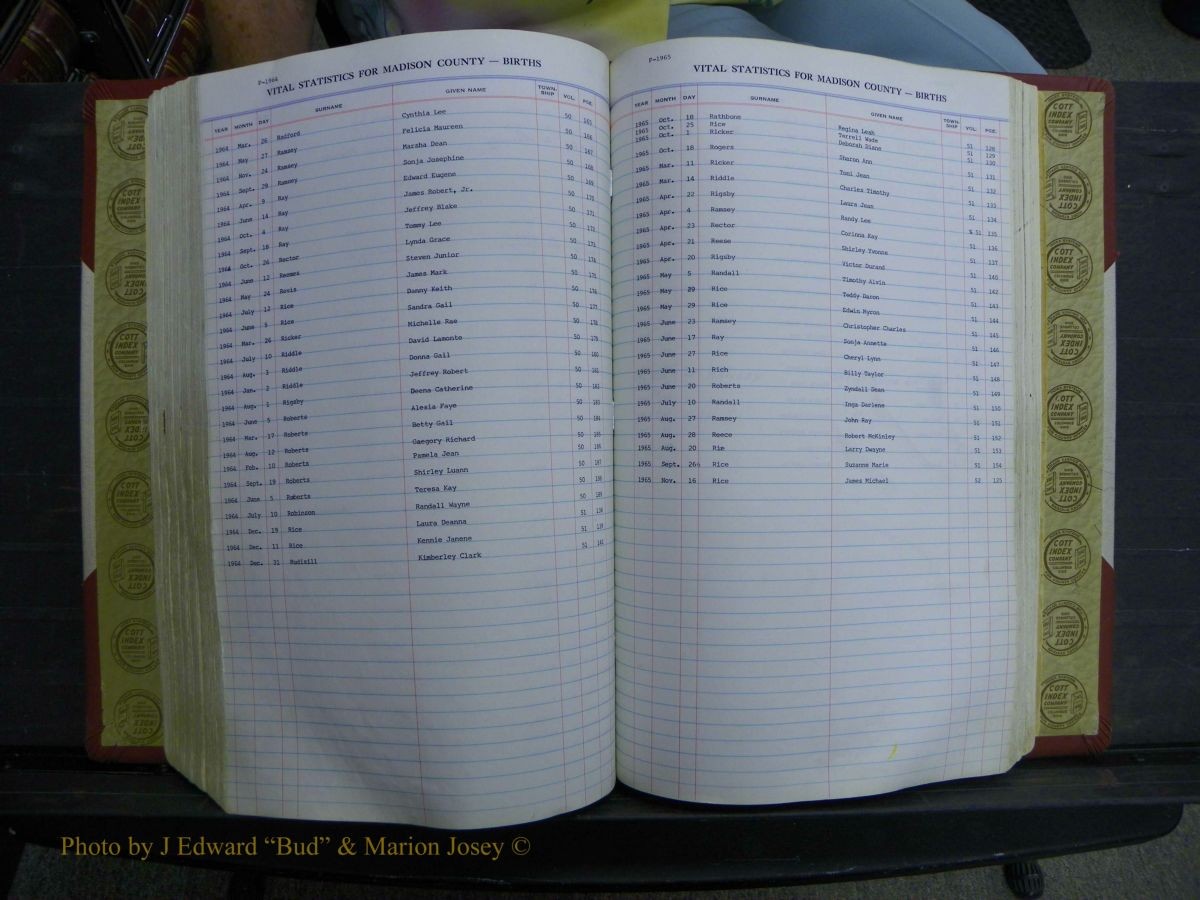 P-1964
VITAL STATISTICS FOR MADISON COUNTY — BIRTHS
YEAR MONTH DAY SURNAME GIVEN NAME TOWN-SHIP VOL. PGE.
1964 Mar. 26 Radford Cynthia Lee 50 165
1964 May 27 Ramsey Felicia Maureen 50 166
1964 Nov. 24 Ramsey Marsha Dean 50 167
1964 Sept. 29 Ramsey Sonja Josephine 50 168
1964 Apr. 9 Ray Edward Eugene 50 169
1964 June 14 Ray James Robert, Jr. 50 170
1964 Oct. 4 Ray Jeffrey Blake 50 171
1964 Sept. 18 Ray Tommy Lee 50 172
1964 Oct. 26 Rector Lynda Grace 50 173
1964 June 12 Reemes Steven Junior 50 174
1964 May 24 Revis James Mark 50 175
1964 July 12 Rice Danny Keith 50 176
1964 June 5 Rice Sandra Gail 50 177
1964 Mar. 26 Ricker Michelle Rae 50 178
1964 July 10 Riddle David Lamonte 50 179
1964 Aug. 1 Riddle Donna Gail 50 180
1964 Jan. 2 Riddle Jeffrey Robert 50 181
1964 Aug. 1 Rigsby Deena Catherine 50 182
1964 June 5 Roberts Alesia Faye 50 183
1964 Mar. 17 Roberts Betty Gail 50 184
1964 Aug. 12 Roberts Gaegory Richard 50 185
1964 Feb. 10 Roberts Pamela Jean 50 186
1964 Sept. 19 Roberts Shirley Luann 50 187
1964 June 5 Roberts Teresa Kay 50 188
1964 July 10 Robinson Randall Wayne 50 189
1964 Dec. 19 Rice Laura Deanna 51 138
1964 Dec. 11 Rice Kennie Janene 51 139
1964 Dec. 31 Rudisill Kimberley Clark 51 141
P-1965
VITAL STATISTICS FOR MADISON COUNTY — BIRTHS
YEAR MONTH DAY SURNAME GIVEN NAME TOWN-SHIP VOL. PGE.
1965 Oct. 18 Rathbone Regina Leah 51 128
1965 Oct. 25 Rice Terrell Wade 51 129
1965 Oct. 1 Ricker Deborah Diane 51 130
1965 Oct. 18 Rogers Sharon Ann 51 131
1965 Mar. 11 Ricker Toni Jean 51 132
1965 Mar. 14 Riddle Charles Timothy 51 133
1965 Apr. 22 Rigsby Laura Jean 51 134
1965 Apr. 4 Ramsey Randy Lee 51 135
1965 Apr. 23 Rector Corinna Kay 51 136
1965 Apr. 21 Reese Shirley Yvonne 51 137
1965 Apr. 20 Rigsby Victor Durand 51 140
1965 May 5 Randall Timothy Alvin 51 142
1965 May 29 Rice Teddy Daron 51 143
1965 May 29 Rice Edwin Byron 51 144
1965 June 23 Ramsey Christopher Charles 51 145
1965 June 17 Ray Sonja Annette 51 146
1965 June 27 Rice Cheryl Lynn 51 147
1965 June 11 Rich Billy Taylor 51 148
1965 June 20 Roberts Zyndall Dean 51 149
1965 July 10 Randall Inga Darlene 51 150
1965 Aug. 27 Ramsey John Ray 51 151
1965 Aug. 28 Reece Robert McKinley 51 152
1965 Aug. 20 Larry Dwayne 51 153
1965 Sept. Rice Suzanne Marie 51 154
1965 Nov. 16 Rice James Michael 52 125
COTT INDEX COMPANY COLUMBUS OHIO
Photo by J Edward “Bud” & Marion Josey ©